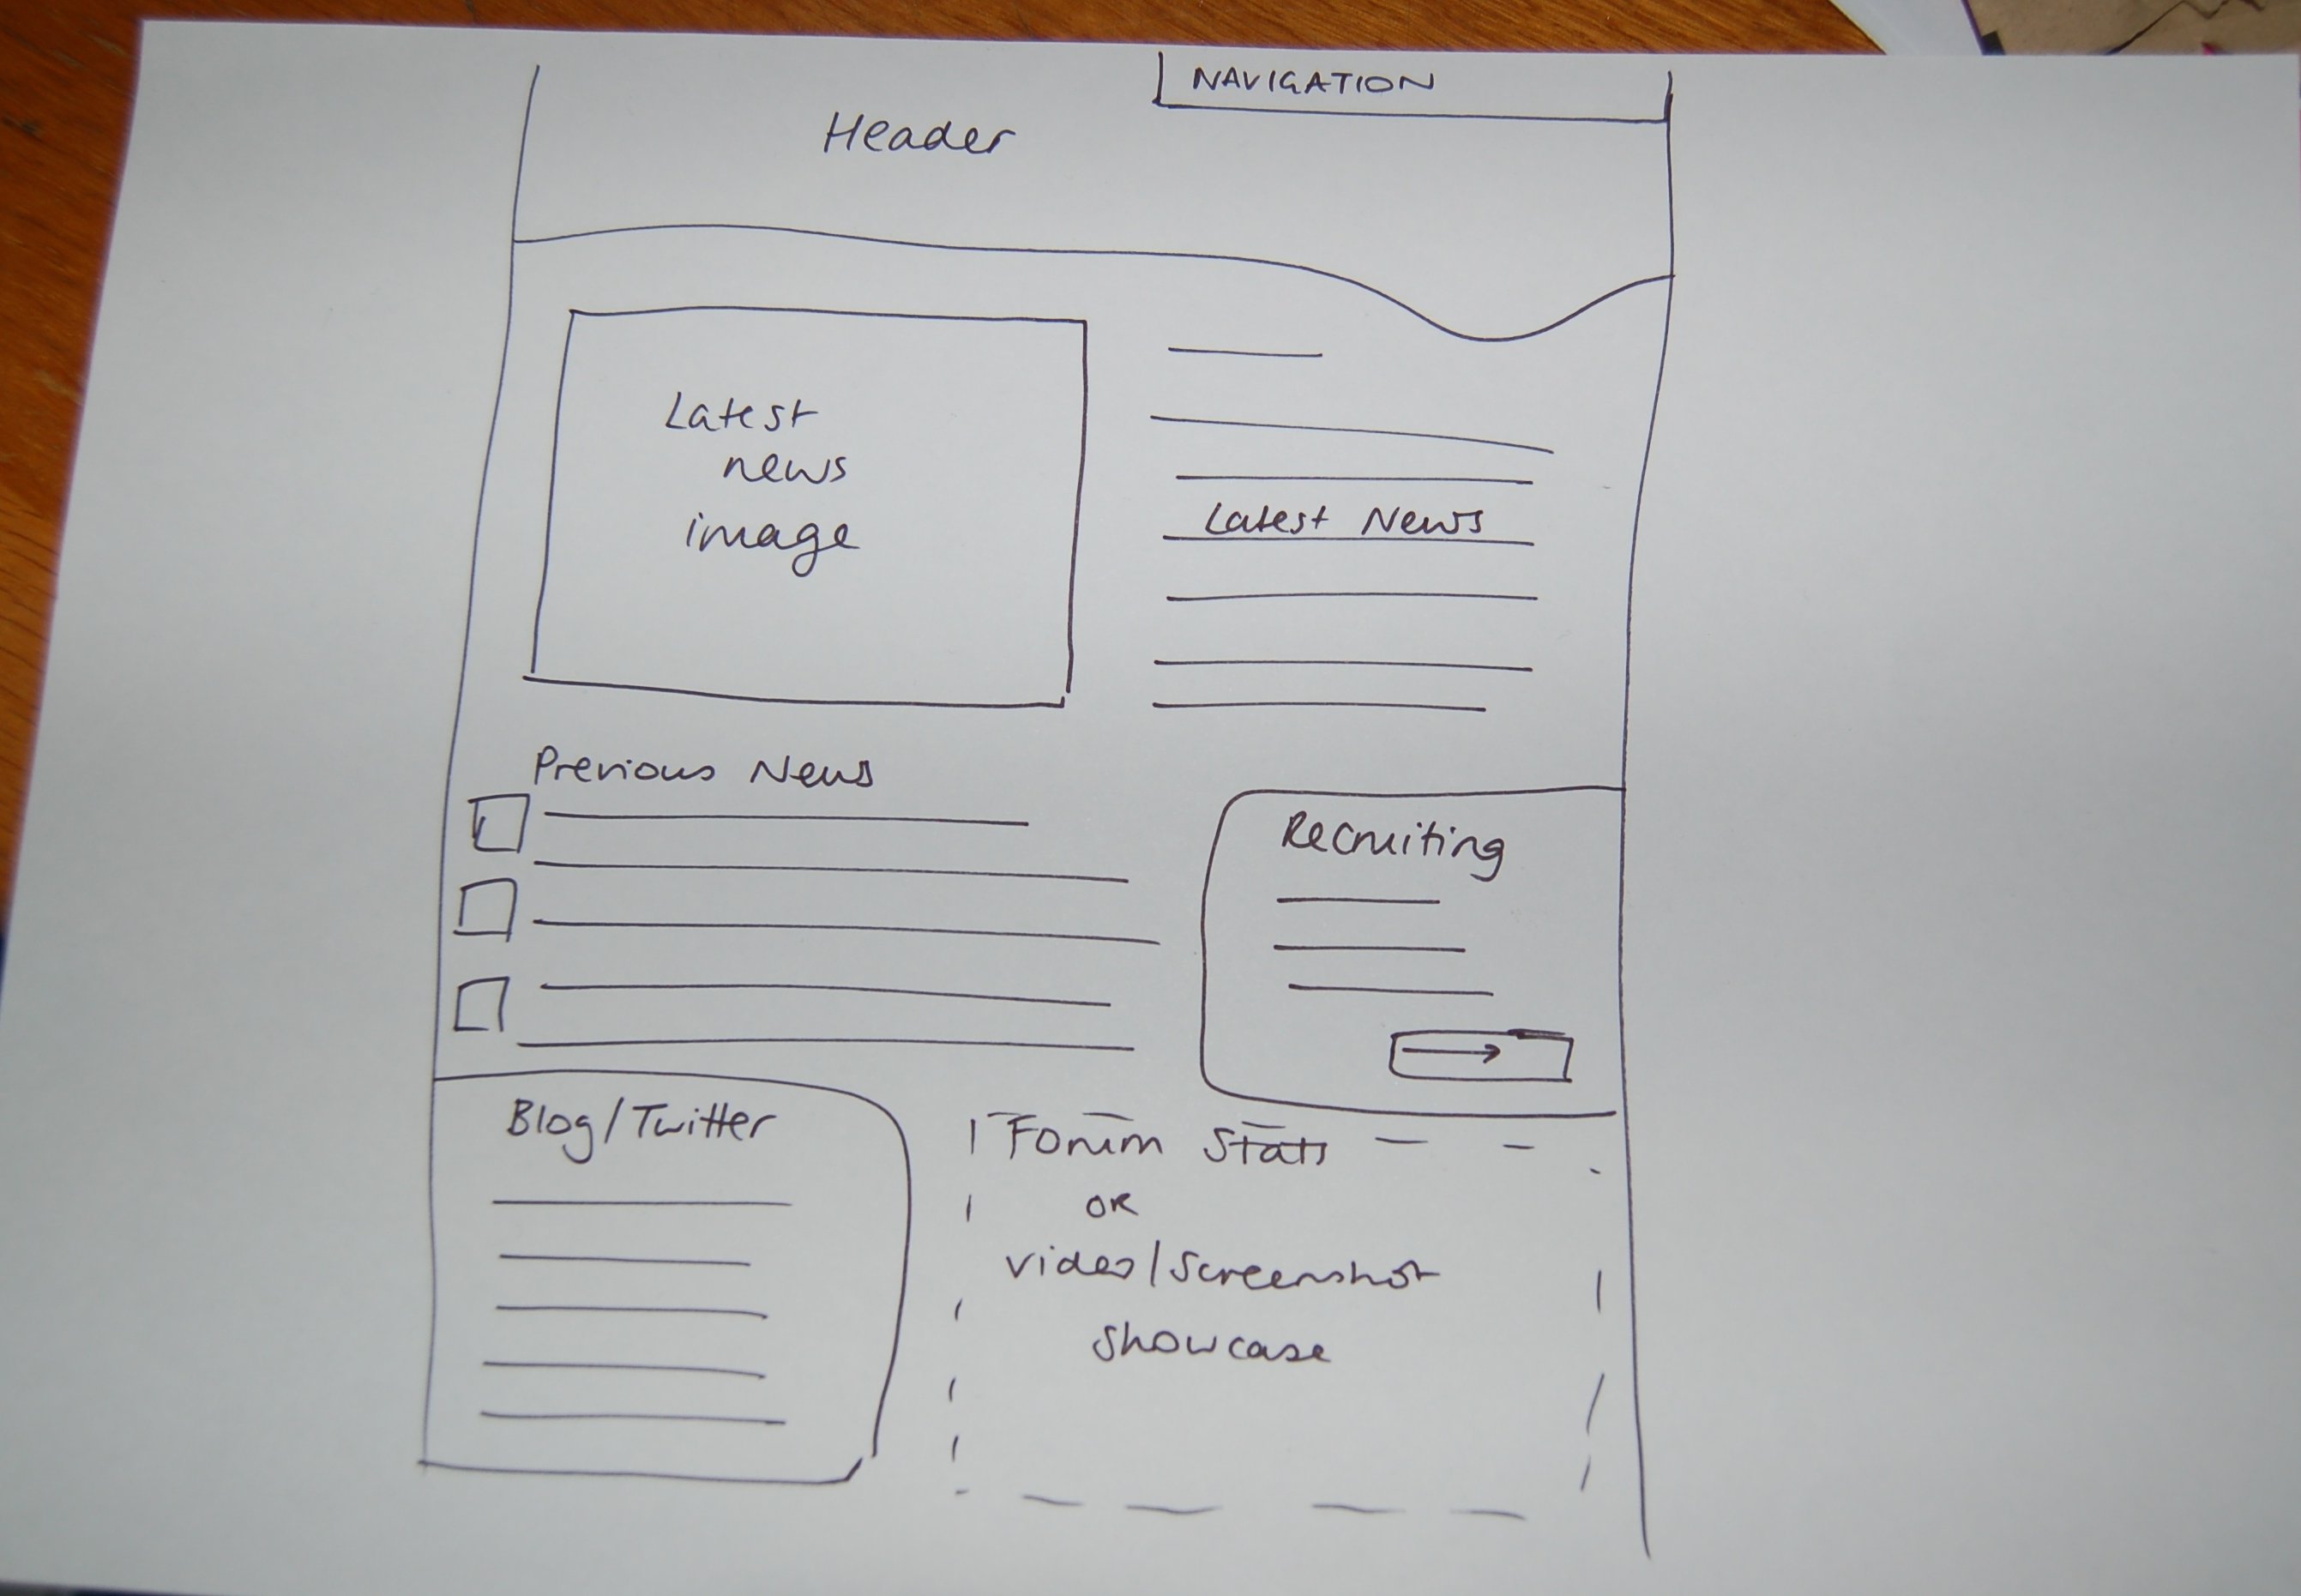 NAVIGATION
Header
Latest
news
image
Latest News
Previous News
Recruiting
Blog/Twitter
Forum Stats
OR
video/screenshot
showcase